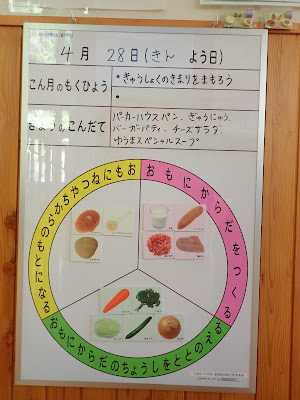 4月 28日(きん よう日)
こん月のもくひょう
・きゅうしょくのきまりをまもろう
・
きょうのこんだて
パーカーハウスパン、ぎゅうにゅう、
バーガーパティ、チーズサラダ、
ゆうまスペシャルスープ
おもにねつやちからのもとになる
おもにからだをつくる
おもにからだのちょうしをととのえる